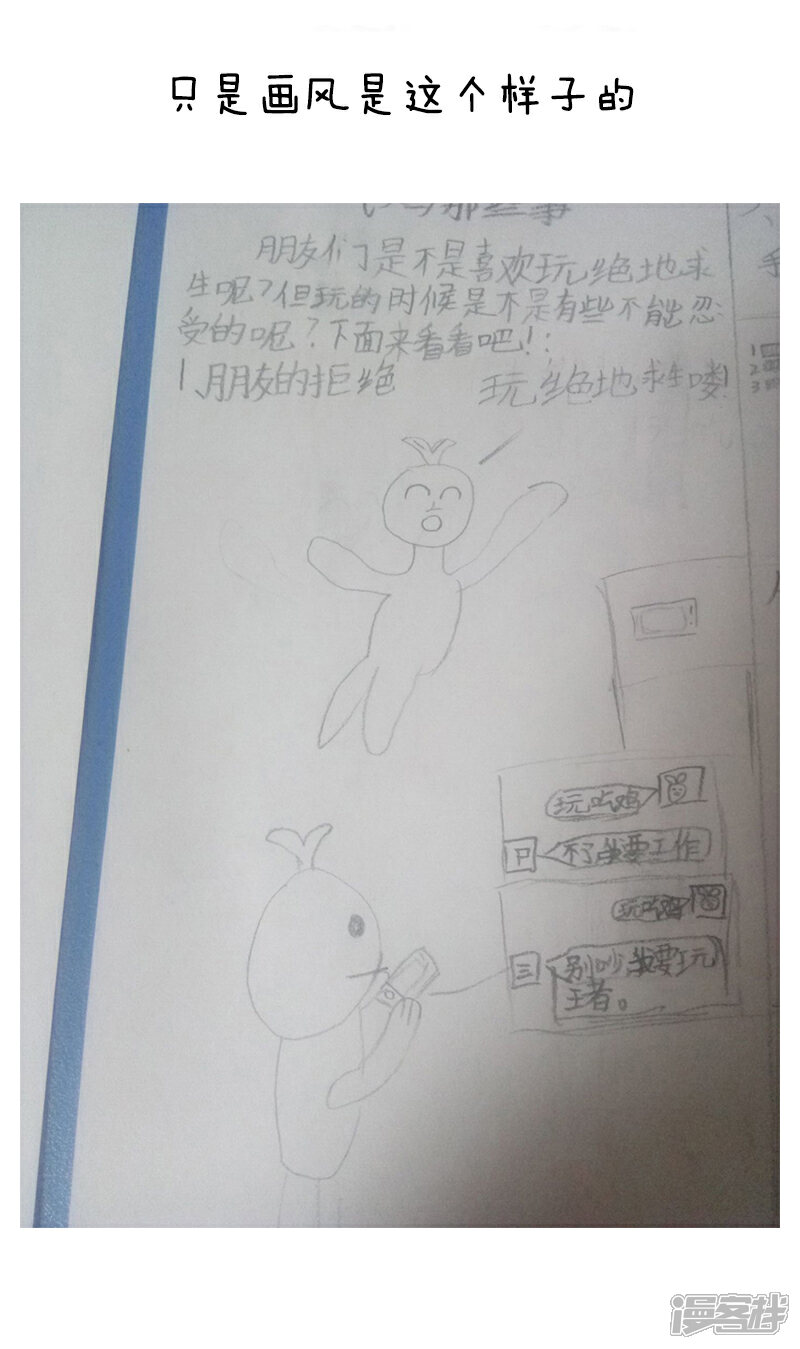 只是画风是这个样子的
那些事
朋友们是不是喜欢玩绝地求
生呢？但玩的时候是不是有些不能忍
受的呢？下面来看看吧！：
1、朋友的拒绝
玩绝地求生喽！
玩吃鸡
不了我要工作
玩吃鸡
别吵，我要玩
王者。
1
2
3
漫客栈